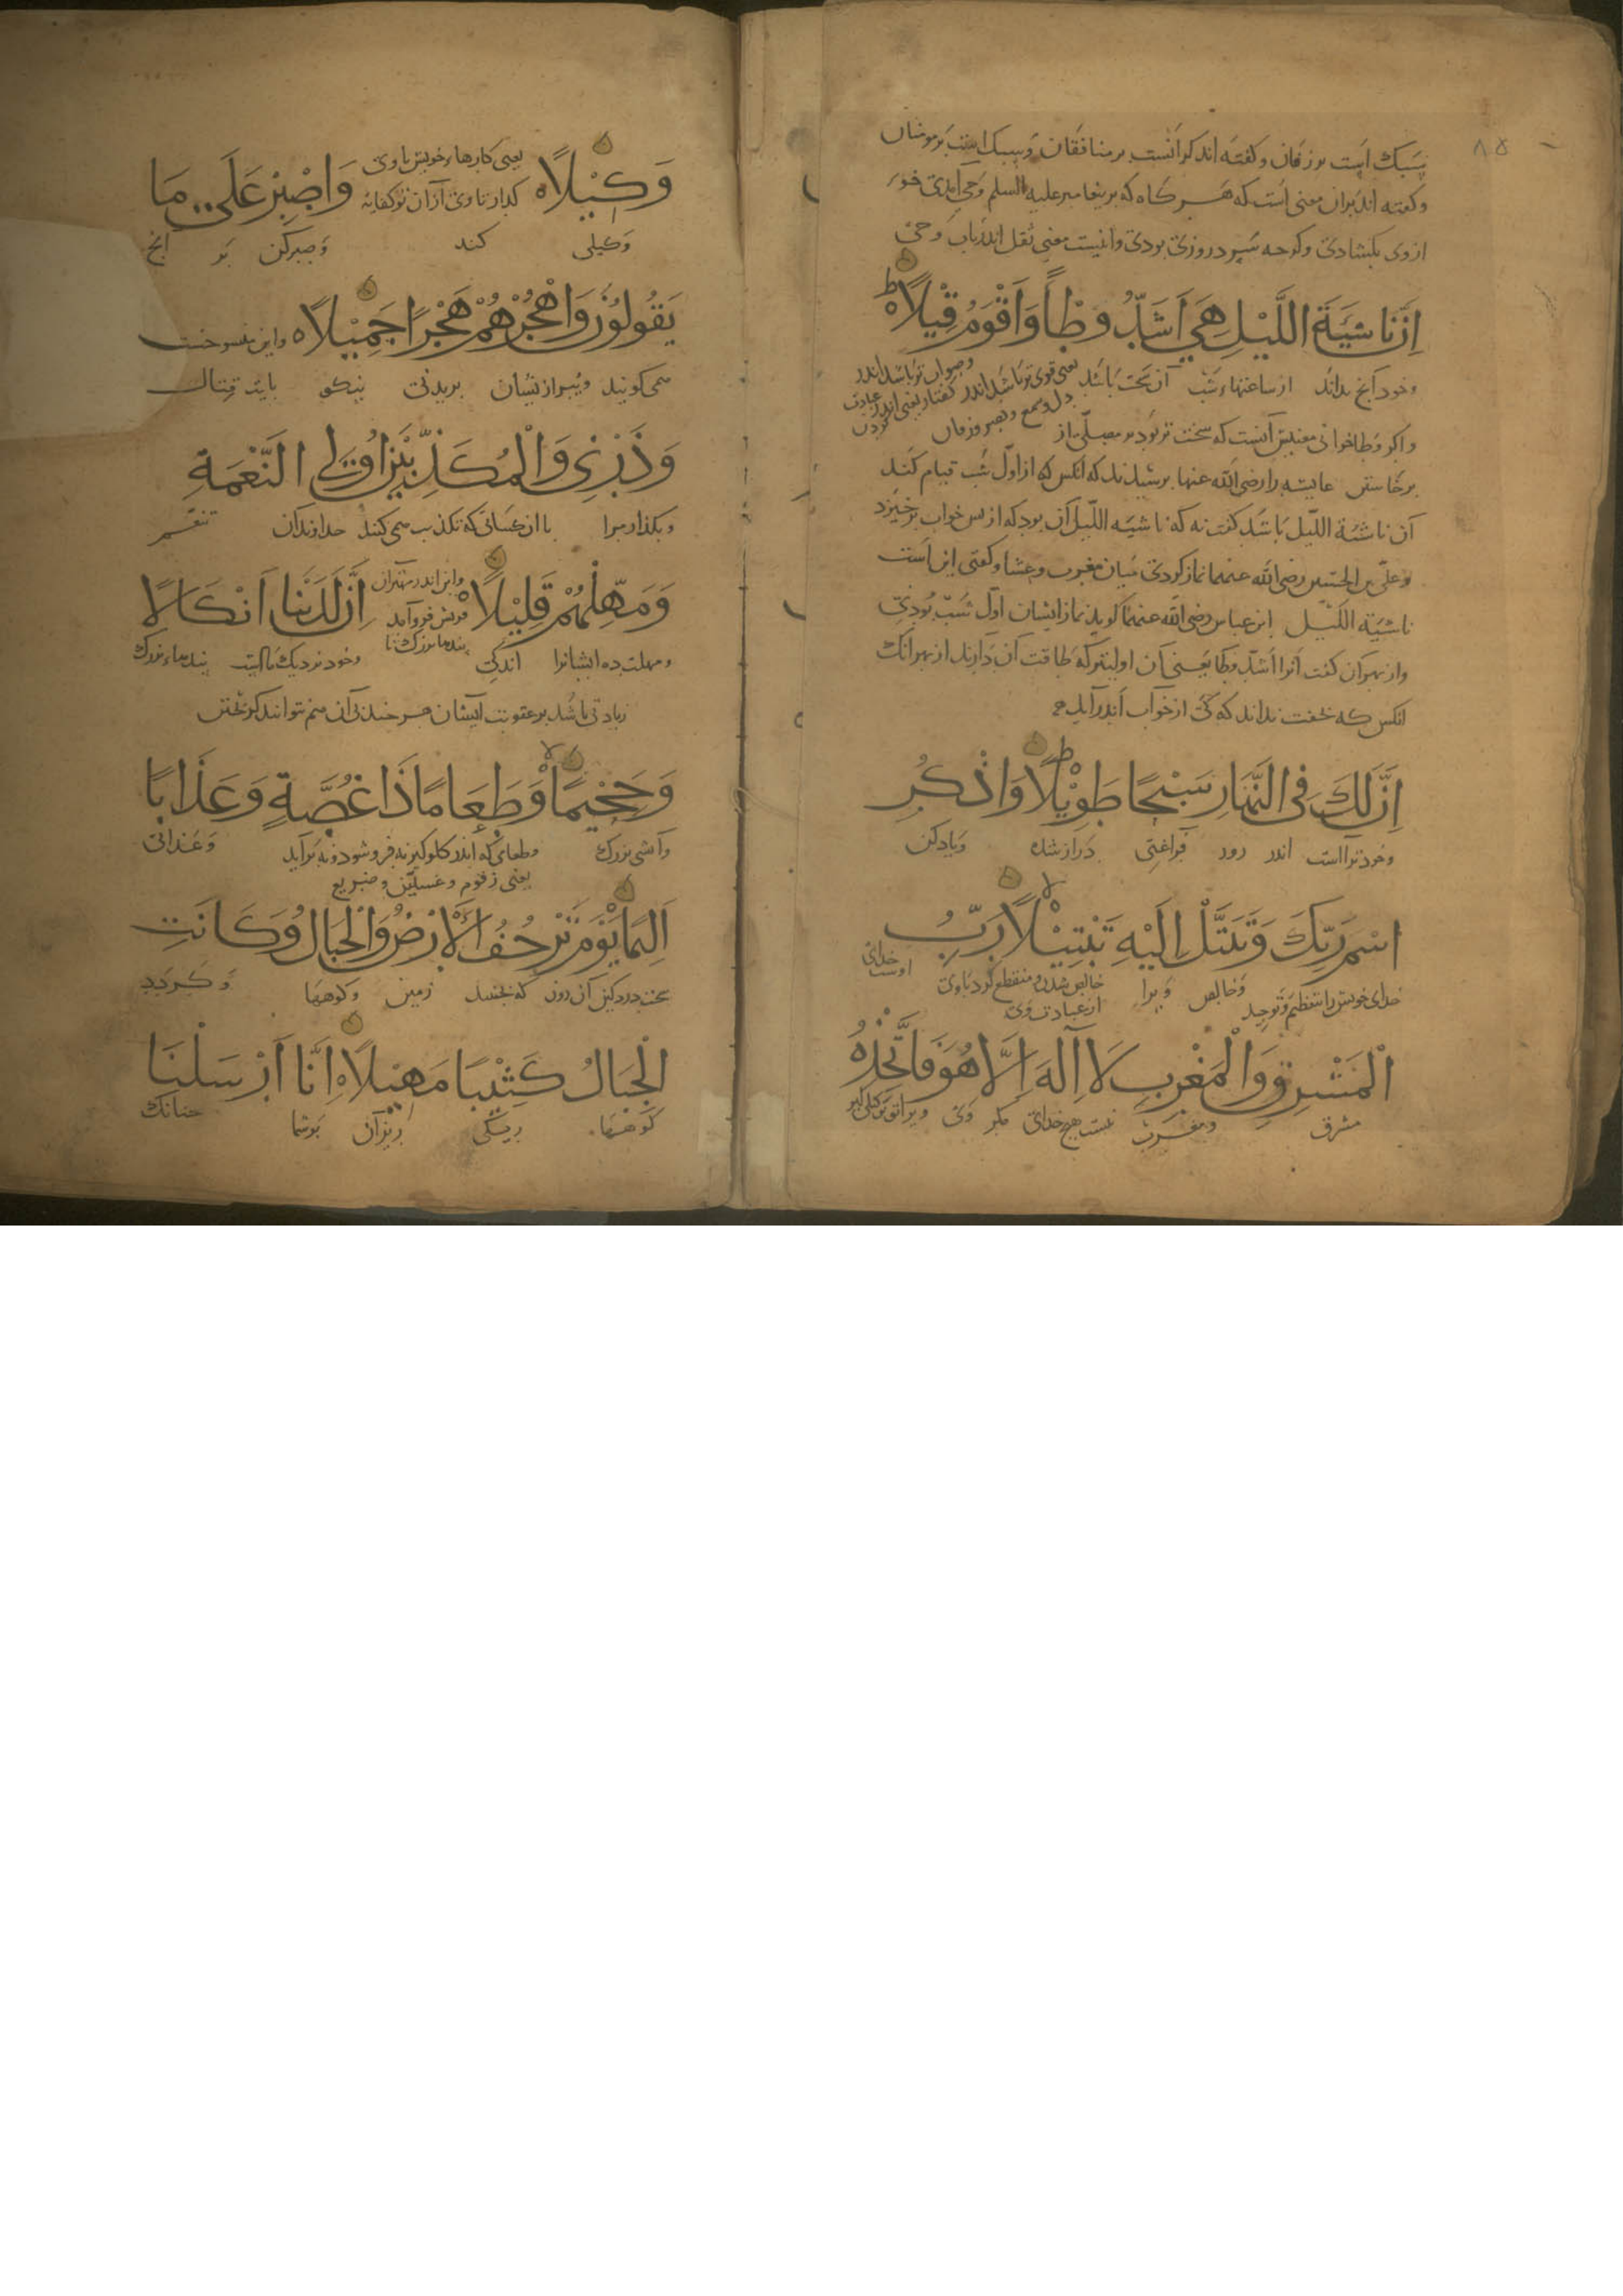 ۸۵
سبک است بر زفان وگفته اند گرانست بر منافقان وسبک است بر مومنان
وگفته اند بران معنی است که هر گاه که بر پیغامبر علیه السلم وحی آمدی خوی
ازوی بگشادی وگرچه سرد روزی بودی واینست معنی ثقل اندر باب وحی
اِنَّ نَاشِيَةَ اللَّيْلِ هِيَ اَشَدُّ وَطْأً وَاَقْوَمُ قِيْلًا
وخود آنچ بداند از ساعتهاء شب آن سخت باشد یعنی قوی تر باشد اندر
وصواب تر باشد اندر گفتار یعنی اندر عبادت کردن
دل وسمع وبصر وزفان
واگر وطا خوانی معنیش آنست که سخت تر بود بر مصلی از
برخاستن عایشه را رضی الله عنها برسیدند که آنکس که از اول شب قیام کند
آن ناشئة اللیل باشد گفت نه که ناشیة اللیل آن بود که از بس خواب برخیزد
وعلی بن الحسین رضی الله عنهما نماز کردی میان مغرب وعشا وگفتی این است
ناشیة اللیل ابن عباس رضی الله عنهما گوید نماز ایشان اول شب بودی
واز بهر آن گفت انرا اشد وطا یعنی آن اولیتر که طاقت آن دارند از بهر آنک
آنکس که بخفت نداند که کی از خواب اندر آید
اِنَّ لَكَ فِى النَّهَارِ سَبْحًا طَوِيْلًا وَاذْكُرِ
وخود تراست اندر روز فراغتی دراز شده ویاد کن
اسْمَ رَبِّكَ وَتَبَتَّلْ اِلَيْهِ تَبْتِيْلًا رَبُّ
خدای خویش را بتعظیم وتوحید وخالص ویرا خالص شدن ومنقطع گرد باوی خدای اوست
از عبادت وی
الْمَشْرِقِ وَالْمَغْرِبِ لَا اِلٰهَ اِلَّا هُوَ فَاتَّخِذْهُ
مشرق ومغرب نیست هیچ خدای مگر وی ویرا تو وکیل گیر
وَكِيْلًا یعنی کارهاء خویش باوی وَاصْبِرْ عَلَى مَا
گذار تا وی آزان تو کفایه
وکیلی کند وصبر کن بر آنچ
يَقُولُوْنَ وَاهْجُرْهُمْ هَجْرًا جَمِيْلًا واین منسوخست
می گویند وببر از ایشان بریدنی نیکو بایت قتال
وَذَرْنِى وَالْمُكَذِّبِيْنَ اُولِى النَّعْمَةِ
وبگذار مرا با آن کسانی که تکذیب می کنند خداوندان تنعم
وَمَهِّلْهُمْ قَلِيْلًا واین اندر مهتران اِنَّ لَدَيْنَا اَنْكَالًا
قریش فروآمد
ومهلت ده ایشانرا اندکی وخود نزدیک ماست بندهاء بزرگ
زیادتی باشد بر عقوبت ایشان هر چند بی آن هم نتوانند گریختن
وَجَحِيْمًا وَطَعَامًا ذَا غُصَّةٍ وَعَذَابًا
وآتشی بزرگ وطعامی که اندر گلو گیرد نه فروشود ونه برآید وعذابی
یعنی زقوم وغسلین وضریع
اَلِيْمًا يَوْمَ تَرْجُفُ الْاَرْضُ وَالْجِبَالُ وَكَانَتِ
سخت دردگین آن روز که بجنبد زمین وکوهها وگردد
الْجِبَالُ كَثِيْبًا مَهِيْلًا اِنَّا اَرْسَلْنَا
کوهها ریگی ریزان بر شما چنانک